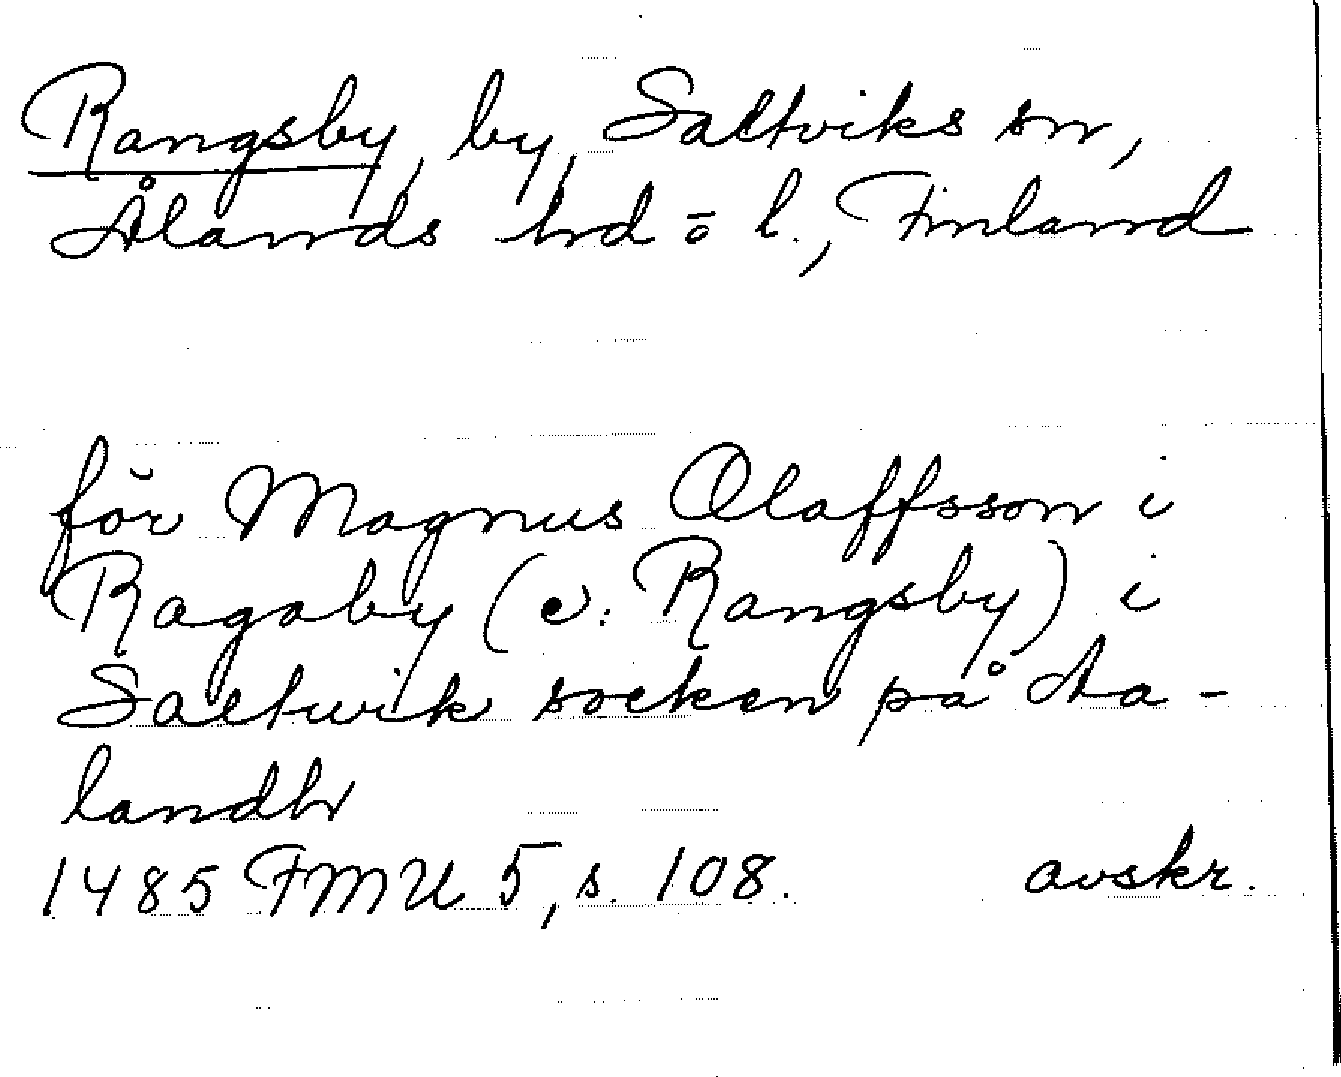 Rangsby, by, Saltviks sn,
Ålands hd ō l., Finland
för Magnus Olaffsson i
Ragaby (ɔ: Rangsby) i
Saltwik socken på Aa-
landh
1485 FMU 5, s. 108. avskr.